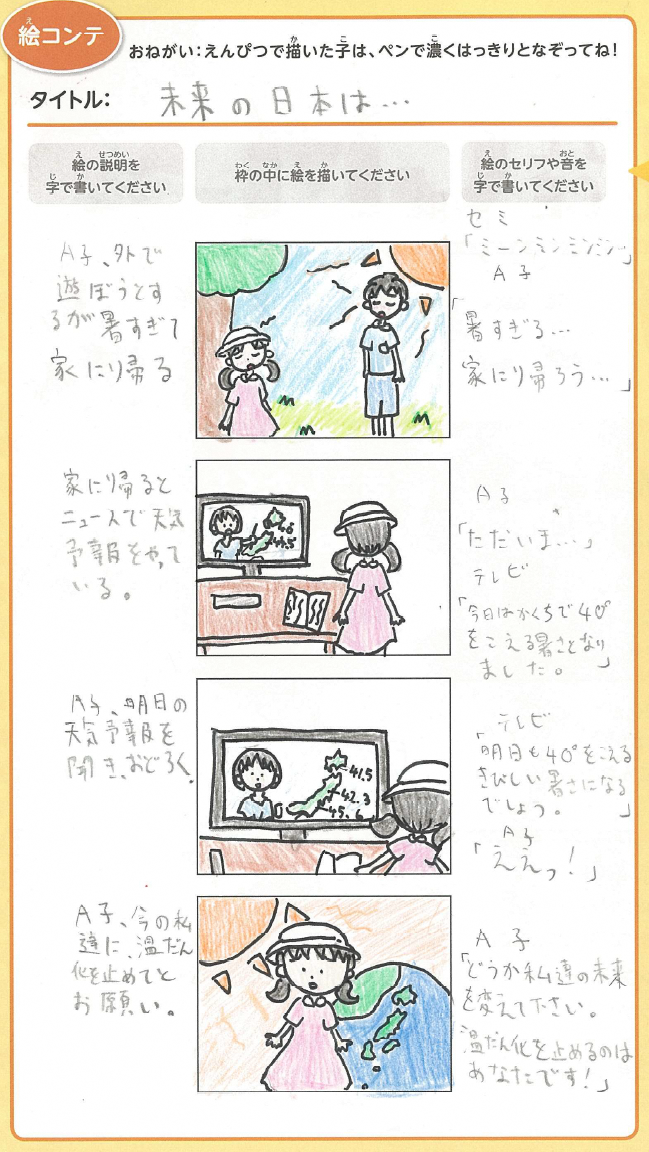 絵コンテ
おねがい：えんぴつで描いた子は、ペンで濃くはっきりとなぞってね！
タイトル： 未来の日本は…
絵の説明を
字で書いてください
枠の中に絵を描いてください
絵のセリフや音を
字で書いてください
A子、外で
遊ぼうとす
るが暑すぎて
家に帰る
セミ
「ミーンミンミンミン」
A子
「暑すぎる…
家に帰ろう…」
家に帰ると
ニュースで天気
予報をやって
いる。
A子
「ただいま…」
テレビ
「今日はかくちで40°
をこえる暑さとなり
ました。」
A子、明日の
天気予報を
聞き、おどろく
41.5
42.3
45.6
テレビ
「明日も40°をこえる
きびしい暑さになる
でしょう。」
A子
「ええっ！」
A子、今の私
達に、温だん
化を止めてと
お願い。
A子
「どうか私達の未来
を変えて下さい。
温だん化を止めるのは
あなたです！」